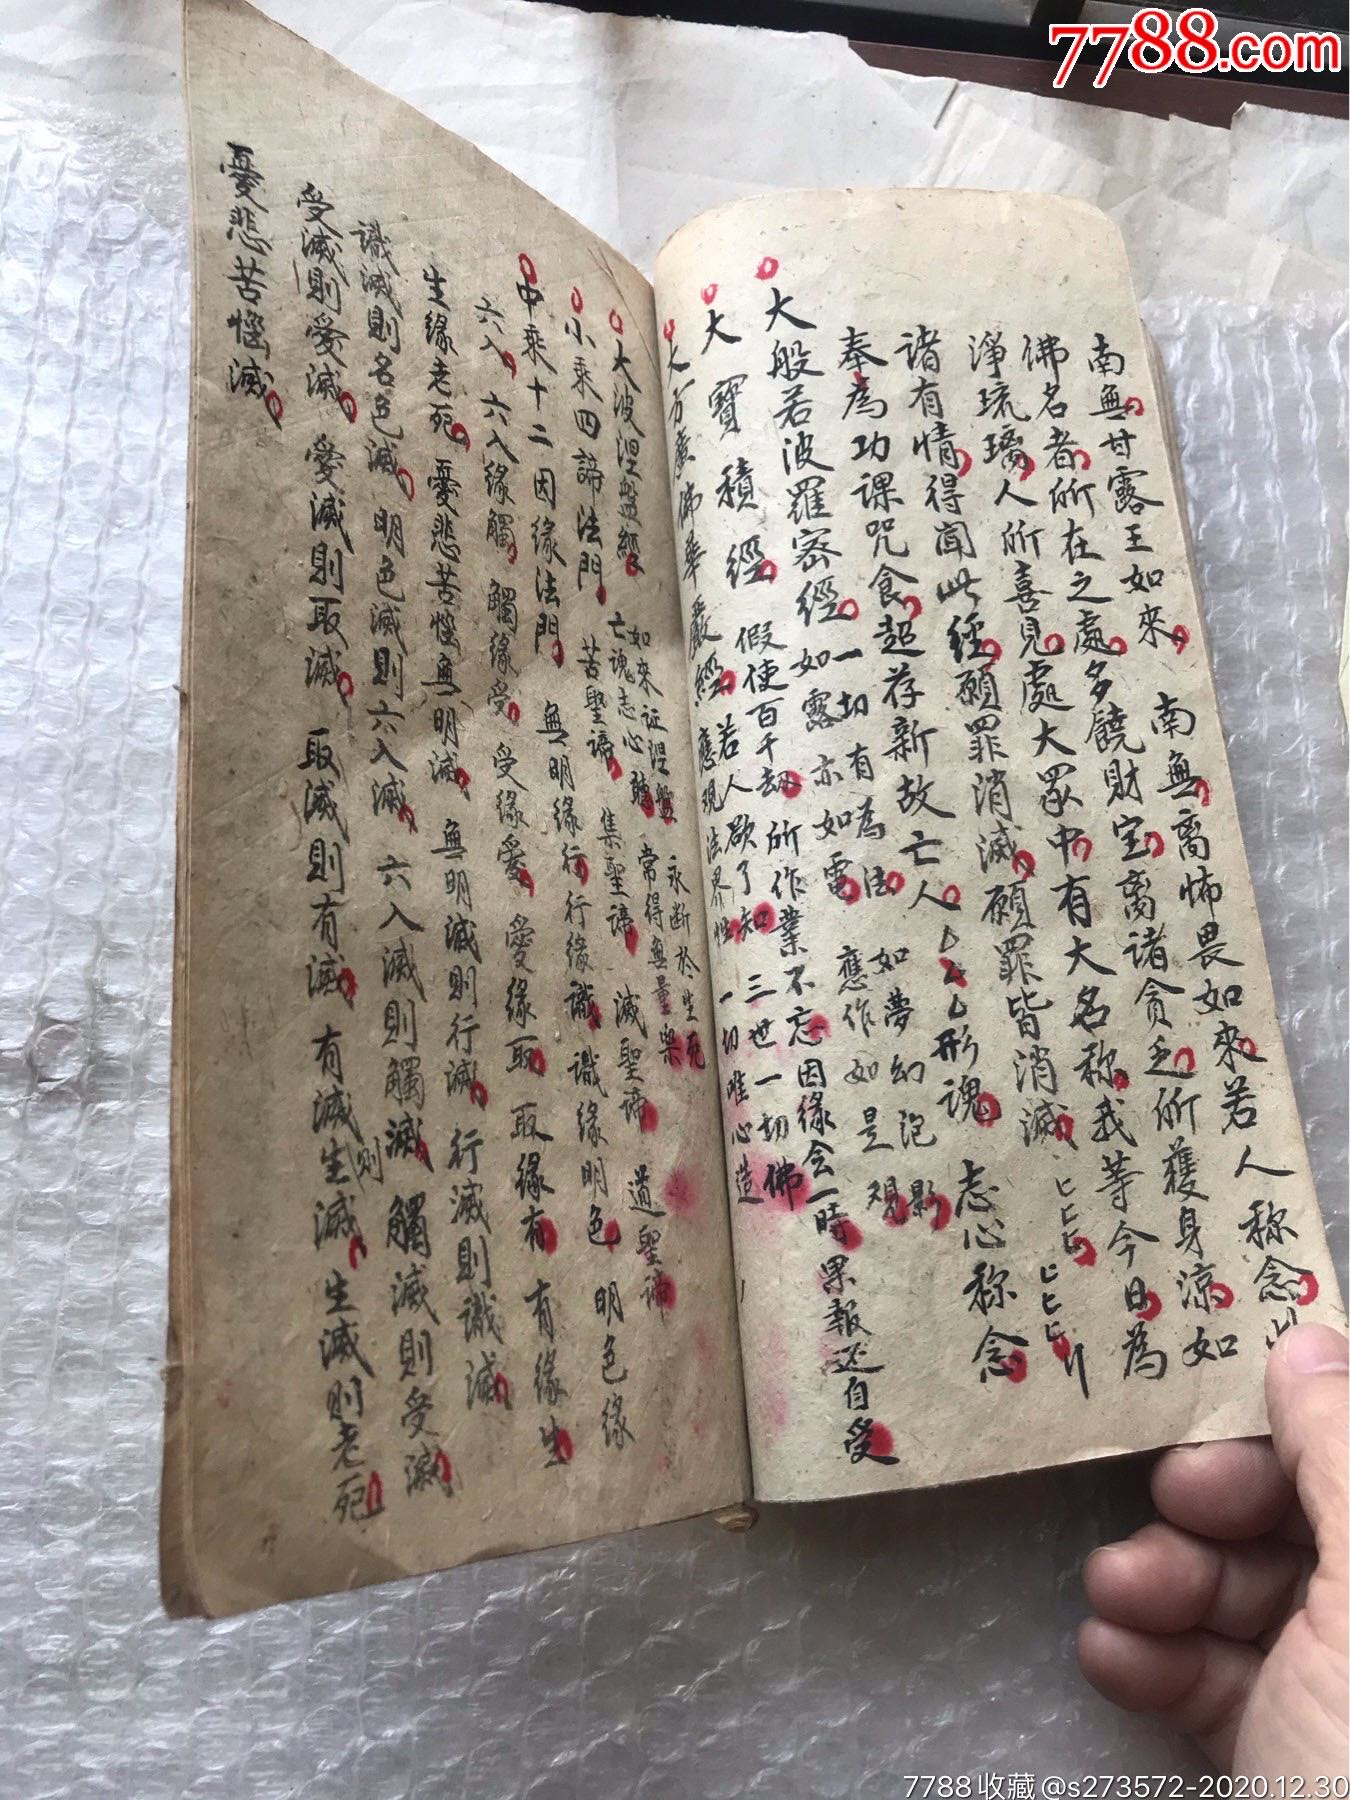 7788.com
南無甘露王如來 南無离怖畏如來若人称念此
佛名者所在之處多饒財宝离諸貪乏所獲身凉如
淨琉璃人所喜見處大眾中有大名称我等今日為
諸有情得聞此經願罪消滅願罪皆消滅
奉為功課咒食超荐新故亡人 形魂 志心称念
大般若波羅密經 一切有為法 如夢幻泡影
如露亦如電 應作如是观
大寶積經 假使百千劫 所作業不忘 因缘会一時 果報还自受
大方廣佛華嚴經 若人欲了知 三世一切佛
應現法界性 一切唯心造
大波涅盤經 如來证涅盤 永断於生死
亡魂志心聽 常得無量樂
小乘四諦法門 苦聖諦 集聖諦 滅聖諦 道聖諦
中乘十二因缘法門 無明缘行 行缘識 識缘明色 明色缘
六入 六入缘觸 觸缘受 受缘愛 愛缘取 取缘有 有缘生
生缘老死 憂悲苦惱無明滅 無明滅則行滅 行滅則識滅
識滅則名色滅 明色滅則六入滅 六入滅則觸滅 觸滅則受滅
受滅則愛滅 愛滅則取滅 取滅則有滅 有滅則生滅 生滅則老死
憂悲苦惱滅
7788收藏@s273572-2020.12.30